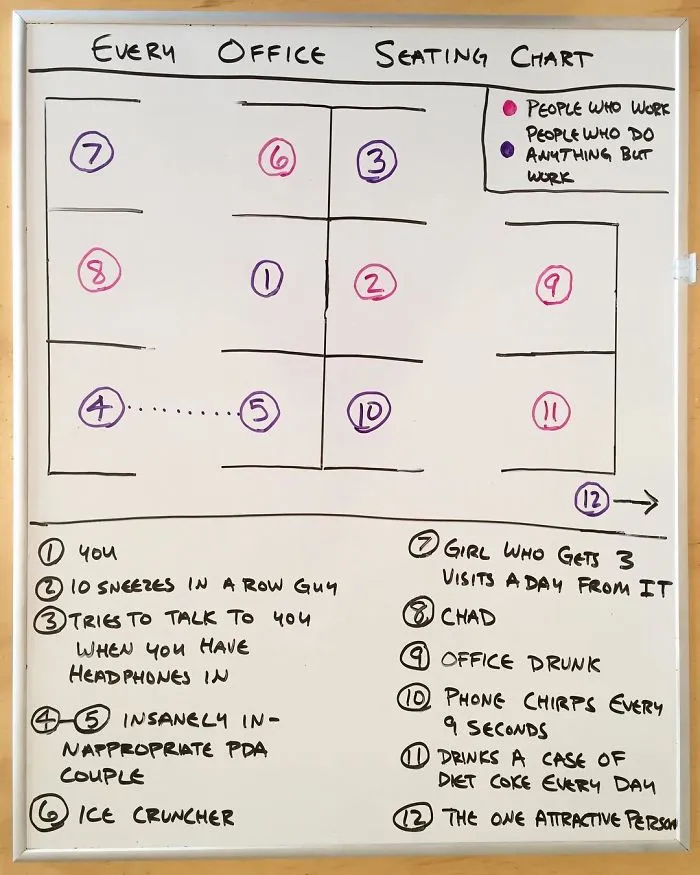 EVERY OFFICE SEATING CHART
PEOPLE WHO WORK
PEOPLE WHO DO
ANYTHING BUT
WORK
7
6
3
8
1
2
9
4
5
10
11
12
1 YOU
2 10 SNEEZES IN A ROW GUY
3 TRIES TO TALK TO YOU
WHEN YOU HAVE
HEADPHONES IN
4-5 INSANELY IN-
NAPPROPRIATE PDA
COUPLE
6 ICE CRUNCHER
7 GIRL WHO GETS 3
VISITS A DAY FROM IT
8 CHAD
9 OFFICE DRUNK
10 PHONE CHIRPS EVERY
9 SECONDS
11 DRINKS A CASE OF
DIET COKE EVERY DAY
12 THE ONE ATTRACTIVE PERSON